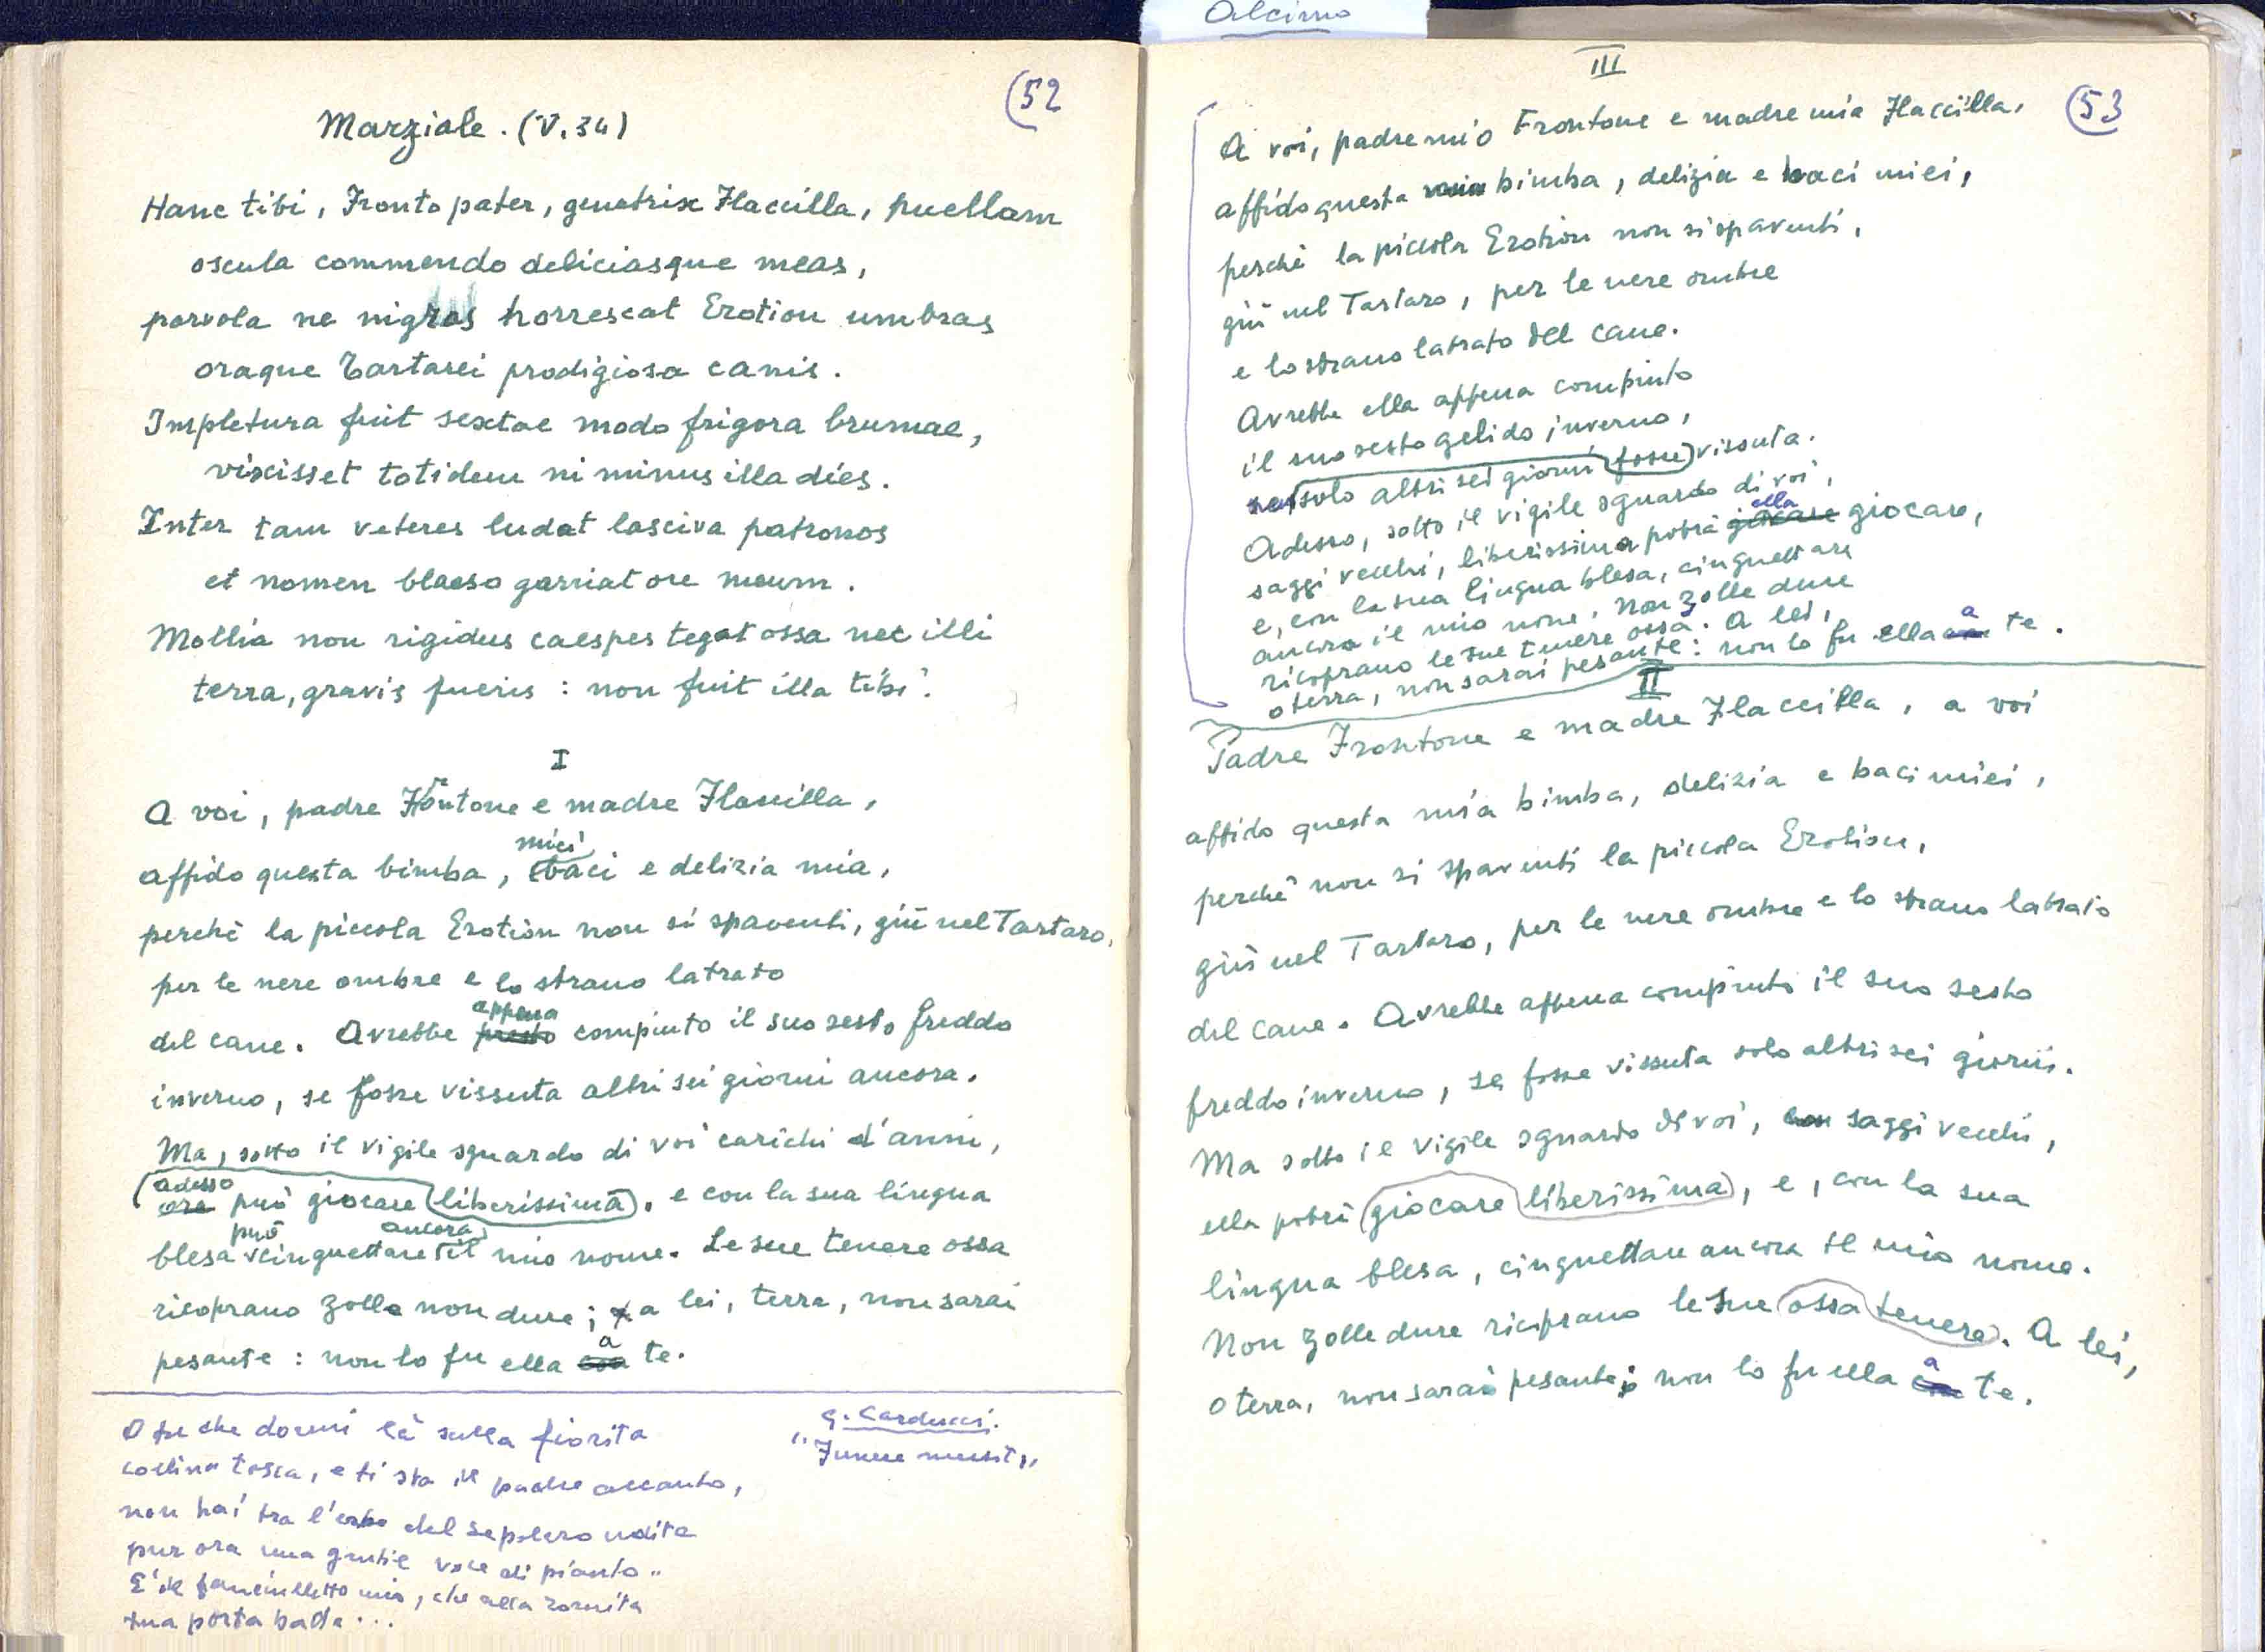 (52
Marziale. (V.34)
Hanc tibi, Fronto pater, genetrix Flaccilla, puellam
oscula commendo deliciasque meas,
parvola ne nigras horrescat Erotion umbras
oraque Tartarei prodigiosa canis.
Impletura fuit sextae modo frigora brumae,
vixisset totidem ni minus illa dies.
Inter tam veteres ludat lasciva patronos
et nomen blaeso garriat ore meum.
Mollia non rigidus caespes tegat ossa nec illi
terra, gravis fueris: non fuit illa tibi.
I
A voi, padre Frontone e madre Flaccilla,
miei
affido questa bimba, baci e delizia mia,
perchè la piccola Erotion non si spaventi, giù nel Tartaro,
per le nere ombre e lo strano latrato
appena
del cane. Avrebbe presto compiuto il suo sesto freddo
inverno, se fosse vissuta altri sei giorni ancora.
Ma, sotto il vigile sguardo di voi carichi d'anni,
adesso
ora può giocare liberissima, e con la sua lingua
può ancora
blesa cinguettare il mio nome. Le sue tenere ossa
ricoprano zolle non dure; a lei, terra, non sarai
a
pesante: non lo fu ella con te.
G. Carducci.
"Funere mersit"
O tu che dormi là sulla fiorita
collina tosca, e ti sta il padre accanto,
non hai tra l'erba del sepolcro udita
pur ora una gentil voce di pianto..
E' il fanciulletto mio, che alla romita
tua porta batte...
Alcimo
III
(53
A voi, padre mio Frontone e madre mia Flaccilla,
affido questa mia bimba, delizia e baci miei,
perchè la piccola Erotion non si spaventi,
giù nel Tartaro, per le nere ombre
e lo strano latrato del cane.
Avrebbe ella appena compiuto
il suo sesto gelido inverno,
se solo altri sei giorni fosse vissuta.
Adesso, sotto il vigile sguardo di voi,
ella
saggi vecchi, liberissima potrà giocare giocare,
e, con la sua lingua blesa, cinguettare
ancora il mio nome. Non zolle dure
ricoprano le sue tenere ossa. A lei,
a
o terra, non sarai pesante: non lo fu ella con te.
II
Padre Frontone e madre Flaccilla, a voi
affido questa mia bimba, delizia e baci miei,
perchè non si spaventi la piccola Erotion,
giù nel Tartaro, per le nere ombre e lo strano latrato
del cane. Avrebbe appena compiuto il suo sesto
freddo inverno, se fosse vissuta solo altri sei giorni.
Ma sotto il vigile sguardo di voi, saggi vecchi,
ella potrà giocare liberissima, e, con la sua
lingua blesa, cinguettare ancora il mio nome.
Non zolle dure ricoprano le sue ossa tenere. A lei,
a
o terra, non sarai pesante; non lo fu ella con te.